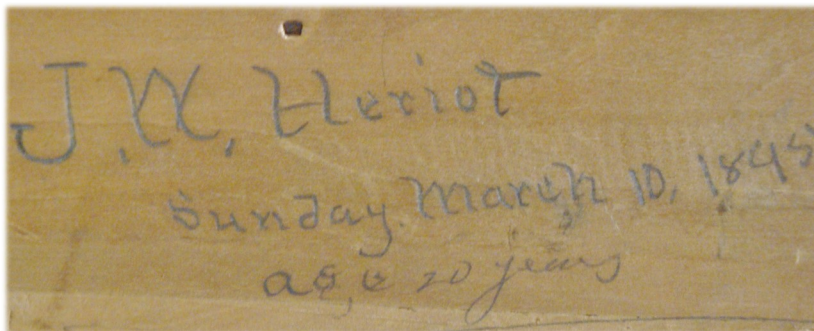 J.W. Heriot
Sunday. March 10, 1845
age 20 years